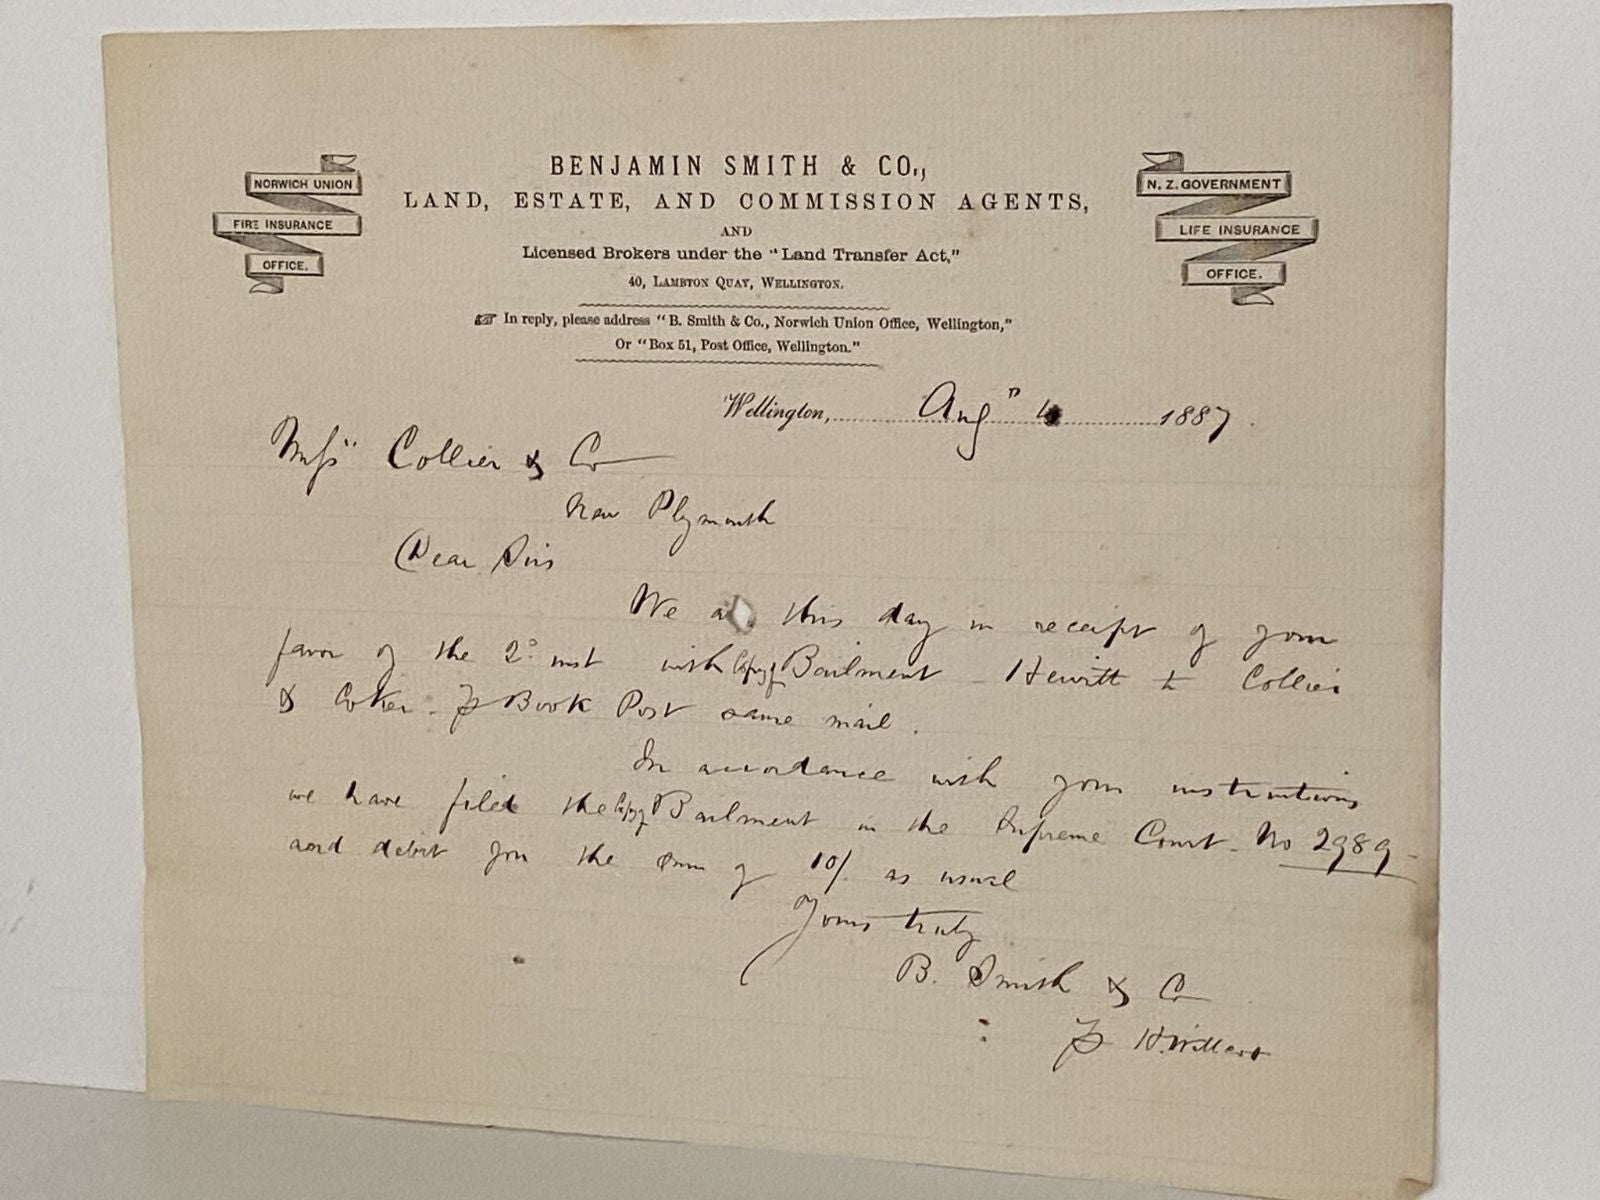 NORWICH UNION
FIRE INSURANCE
OFFICE.
BENJAMIN SMITH & CO.,
LAND, ESTATE, AND COMMISSION AGENTS,
AND
Licensed Brokers under the "Land Transfer Act,"
40, LAMBTON QUAY, WELLINGTON.
In reply, please address "B. Smith & Co., Norwich Union Office, Wellington,"
Or "Box 51, Post Office, Wellington."
N. Z. GOVERNMENT
LIFE INSURANCE
OFFICE.
Wellington, Aug 4 1887
Messrs Collier & Co
New Plymouth
Dear Sirs
We a this day in receipt of your
favor of the 2o inst with Copy of Bailment - Hewitt to Collier
& Coker - Book Post same mail.
In accordance with your instructions
we have filed the Copy of Bailment in the Supreme Court - No 2989 -
and debit you the sum of 10/. as usual
Yours truly
B. Smith & Co
H.